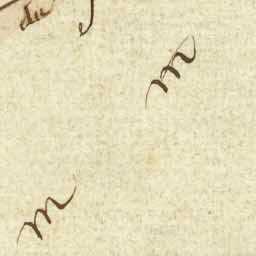 du
m
m